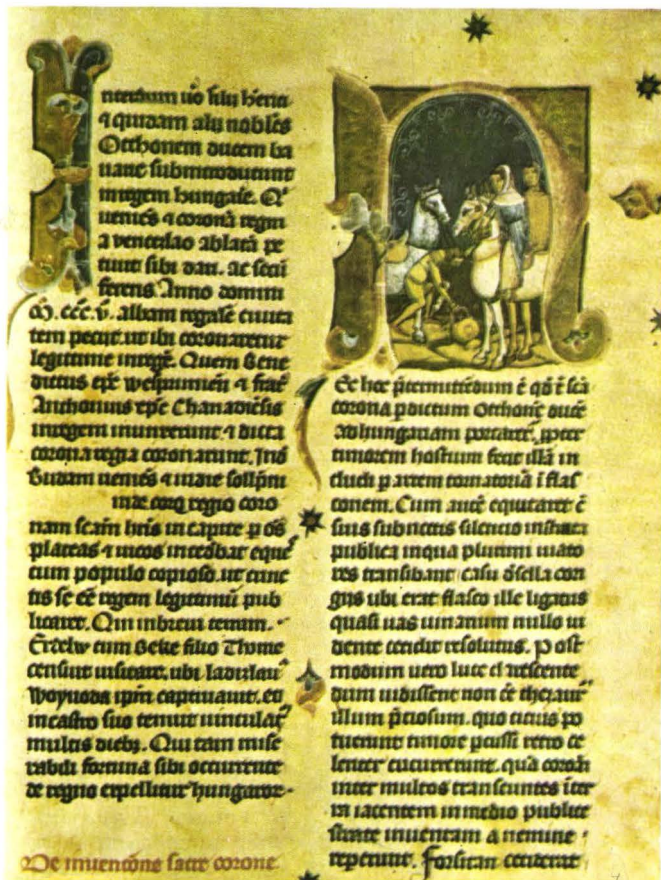 Interdum uo filii henrici
⁊ quidam alii nobiles
Otthonem ducem ba
uarie submtroducunt
in regem hungarie. Qui
ueniens ⁊ coronam regni
a venceslao ablatam pe
tiuit sibi dari. ac secum
ferens Anno domini
M. ccc. v. albam regalem ciuita
tem peciit. ut ibi coronaretur
legittime in regem. Quem Bene
dictus epc wesprimien ⁊ frater
Anthonius epc Chanadiensis
in regem inunxerunt ⁊ dicta
corona regia coronarunt. Inde
Budam ueniens ⁊ in die sollempni
in decorem regio coro
nam sacram hris in capite p oes
plateas ⁊ uicos incedebat eques
cum populo copioso. ut cunc
tis se ee regem legitimum pub
licaret. Qui in breui terram
Erdelw cum Beke filio Thome
censuit uisitare. ubi ladizlaus
Woyuoda ipm captiuauit. et
in castro suo tenuit uinculatum
multis dieb. Qui tam mise
rabili fortuna sibi occurrente
de regno expellitur hungaror.
De inuencione sacre corone
Nec hoc pretermittendum e qd e sca
corona p dictum Otthonem duce
ad hungariam portaretur. ppter
timorem hostium fecit illam in
cludi p artem tornatoriam i flas
conem. Cum autem equitaret cum
suis sub noctis silencio in strata
publica in qua plurimi uiato
res transibant casu de sella con
gruis ubi erat flasco ille ligatus
quasi uas uinarium nullo ui
dente cecidit resolutus. Post
modum uero luce clarescente
dum uidissent non ee thezaurum
illum preciosum. quo cicius po
tuerunt timore pcussi retro ce
leriter cucurrerunt. quam coronam
inter multos transeuntes iter
in iacentem in medio publice
strate inuentam a nemine
reperiunt. Forsitan ceciderat